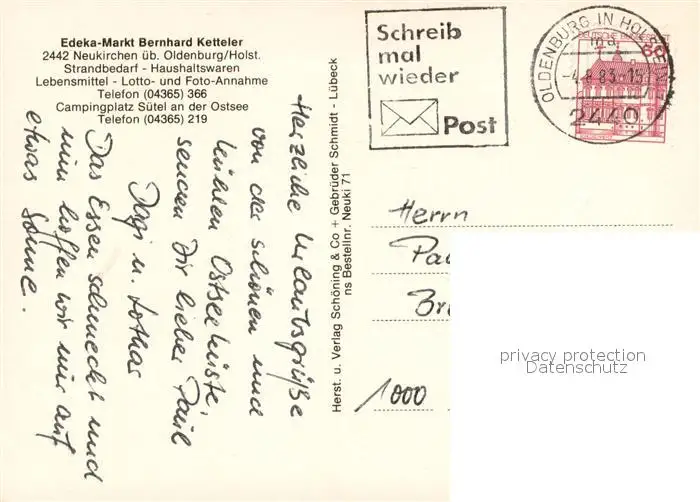 Edeka-Markt Bernhard Ketteler
2442 Neukirchen üb. Oldenburg/Holst.
Strandbedarf - Haushaltswaren
Lebensmittel - Lotto- und Foto-Annahme
Telefon (04365) 366
Campingplatz Sütel an der Ostsee
Telefon (04365) 219
Herzliche Urlaubsgrüße
von der schönen und
kühlen Ostseeküste,
senden Dir lieber Paul
Dagi u. Lothar
Das Essen schmeckt und
nun hoffen wir nur auf
etwas Sonne.
Herst. u. Verlag Schöning & Co + Gebrüder Schmidt - Lübeck
ns Bestellnr. Neuki 71
Schreib
mal
wieder
Post
OLDENBURG IN HOLST
ma
-4.8.83-15
2440
60
Herrn
1000
privacy protection
Datenschutz